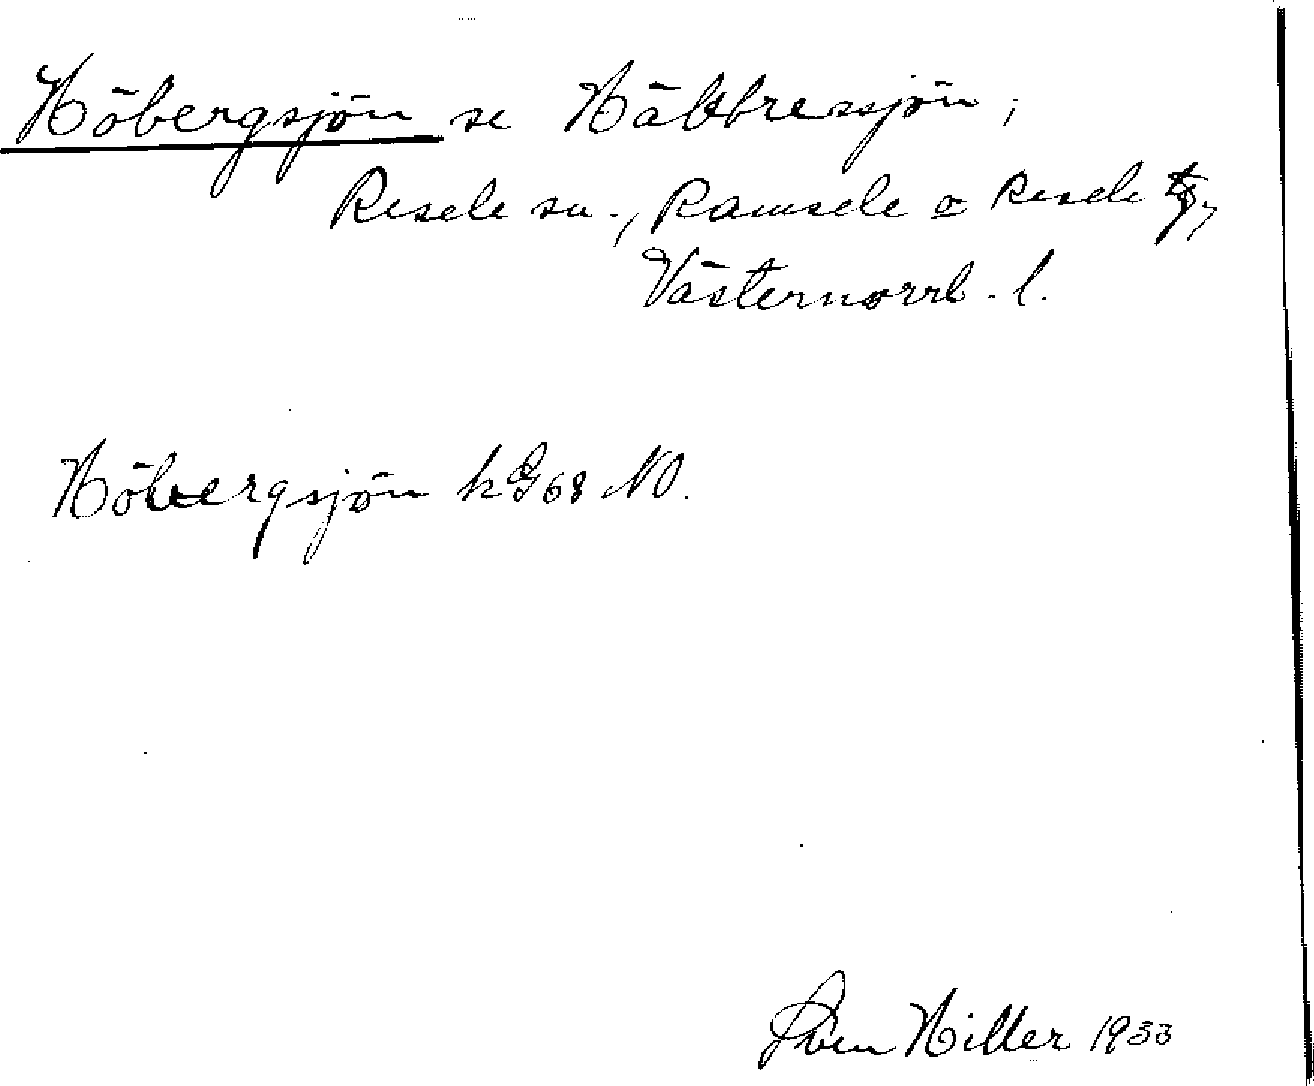 Höbergsjön se Hällbresjön,
Resele sn., Ramsele o Resele tg,
Västernorrl. l.
Höbergsjön kG68 NO.
Sven Hiller 1933